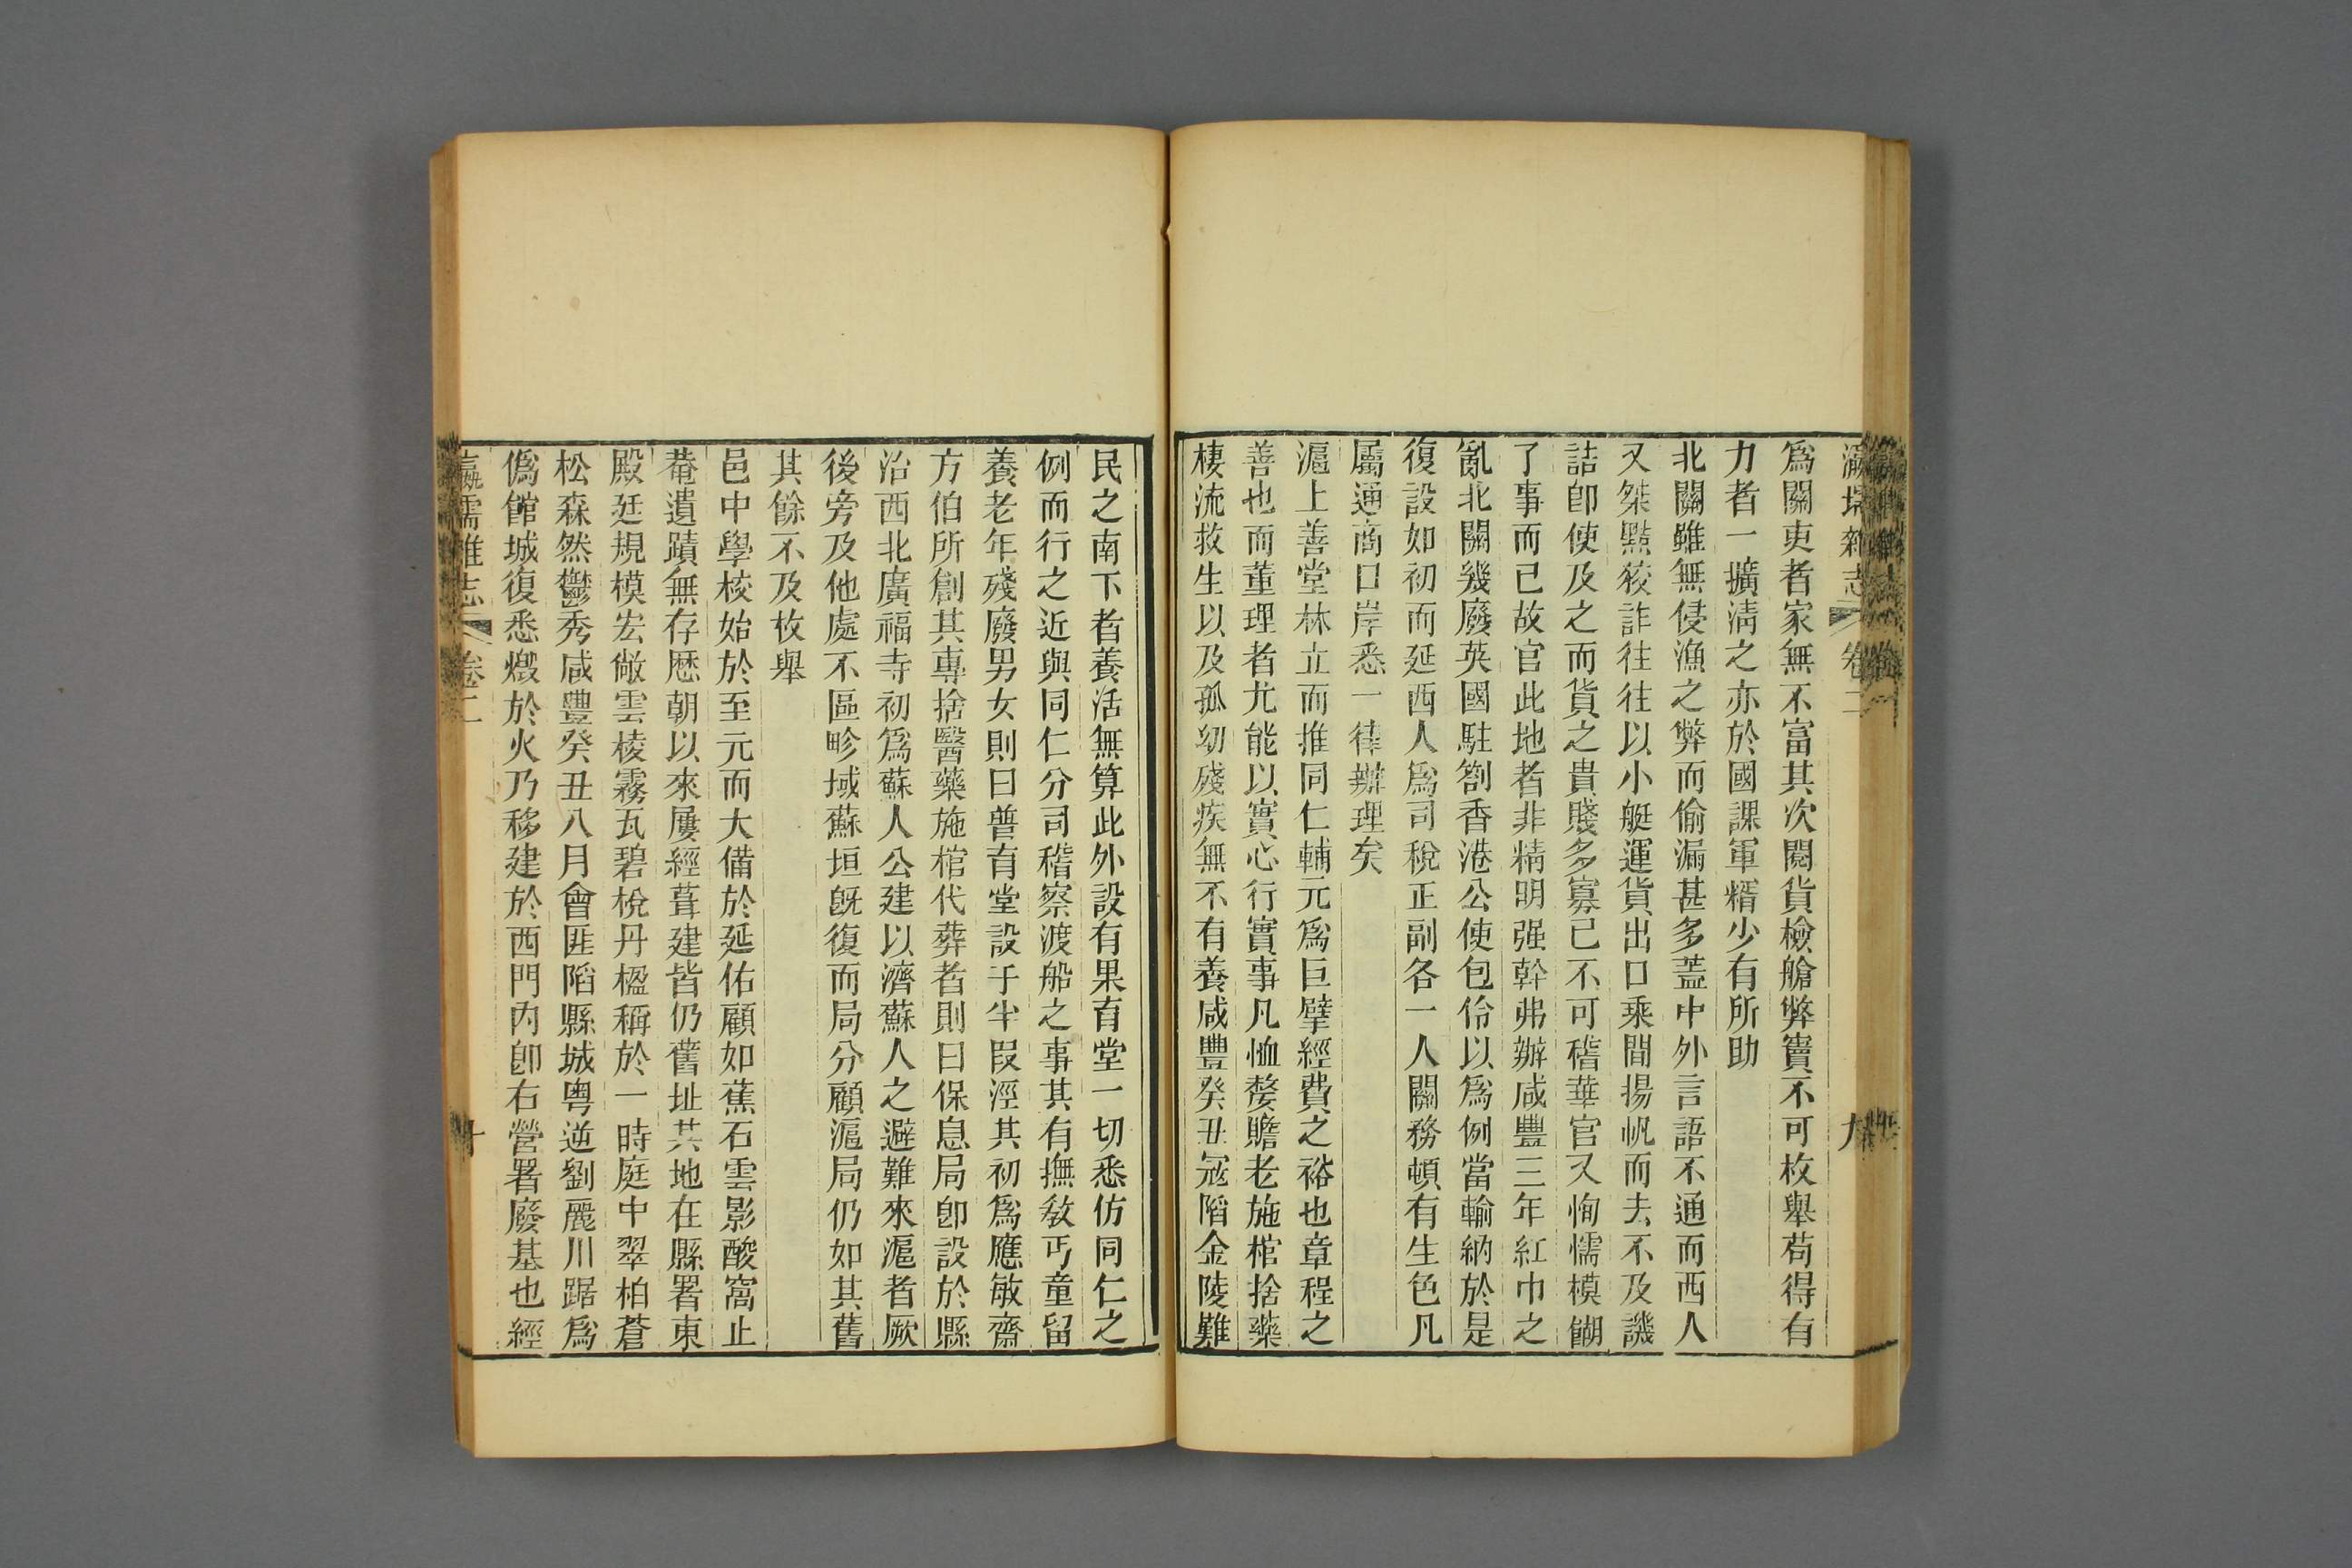 瀛壖雜志 卷二 九
爲關吏者家無不富其次閱貨檢艙弊竇不可枚舉苟得有
力者一擴淸之亦於國課軍糈少有所助
北關雖無侵漁之弊而偷漏甚多蓋中外言語不通而西人
又桀黠狡詐往往以小艇運貨出口乘間揚帆而去不及譏
詰卽使及之而貨之貴賤多寡已不可稽華官又恂懦模餬
了事而已故官此地者非精明强幹弗辦咸豐三年紅巾之
亂北關幾廢英國駐劄香港公使包伶以爲例當輸納於是
復設如初而延西人爲司稅正副各一人關務頓有生色凡
屬通商口岸悉一律辦理矣
滬上善堂林立而推同仁輔元爲巨擘經費之裕也章程之
善也而董理者尤能以實心行實事凡恤嫠贍老施棺捨藥
棲流救生以及孤幼殘疾無不有養咸豐癸丑冦陷金陵難
民之南下者養活無算此外設有果育堂一切悉仿同仁之
例而行之近與同仁分司稽察渡船之事其有撫敎丐童留
養老年殘廢男女則曰普育堂設于半叚涇其初爲應敏齋
方伯所創其專捨醫藥施棺代葬者則曰保息局卽設於縣
治西北廣福寺初爲蘇人公建以濟蘇人之避難來滬者厥
後旁及他處不區畛域蘇垣旣復而局分顧滬局仍如其舊
其餘不及枚舉
邑中學校始於至元而大備於延佑顧如蕉石雲影酸窩止
菴遺蹟無存歷朝以來屢經葺建皆仍舊址其地在縣署東
殿廷規模宏敞雲棱霧瓦碧梲丹楹稱於一時庭中翠柏蒼
松森然鬱秀咸豐癸丑八月會匪陷縣城粤逆劉麗川踞爲
僞館城復悉燬於火乃移建於西門內卽右營署廢基也經
瀛壖雜志 卷二 十